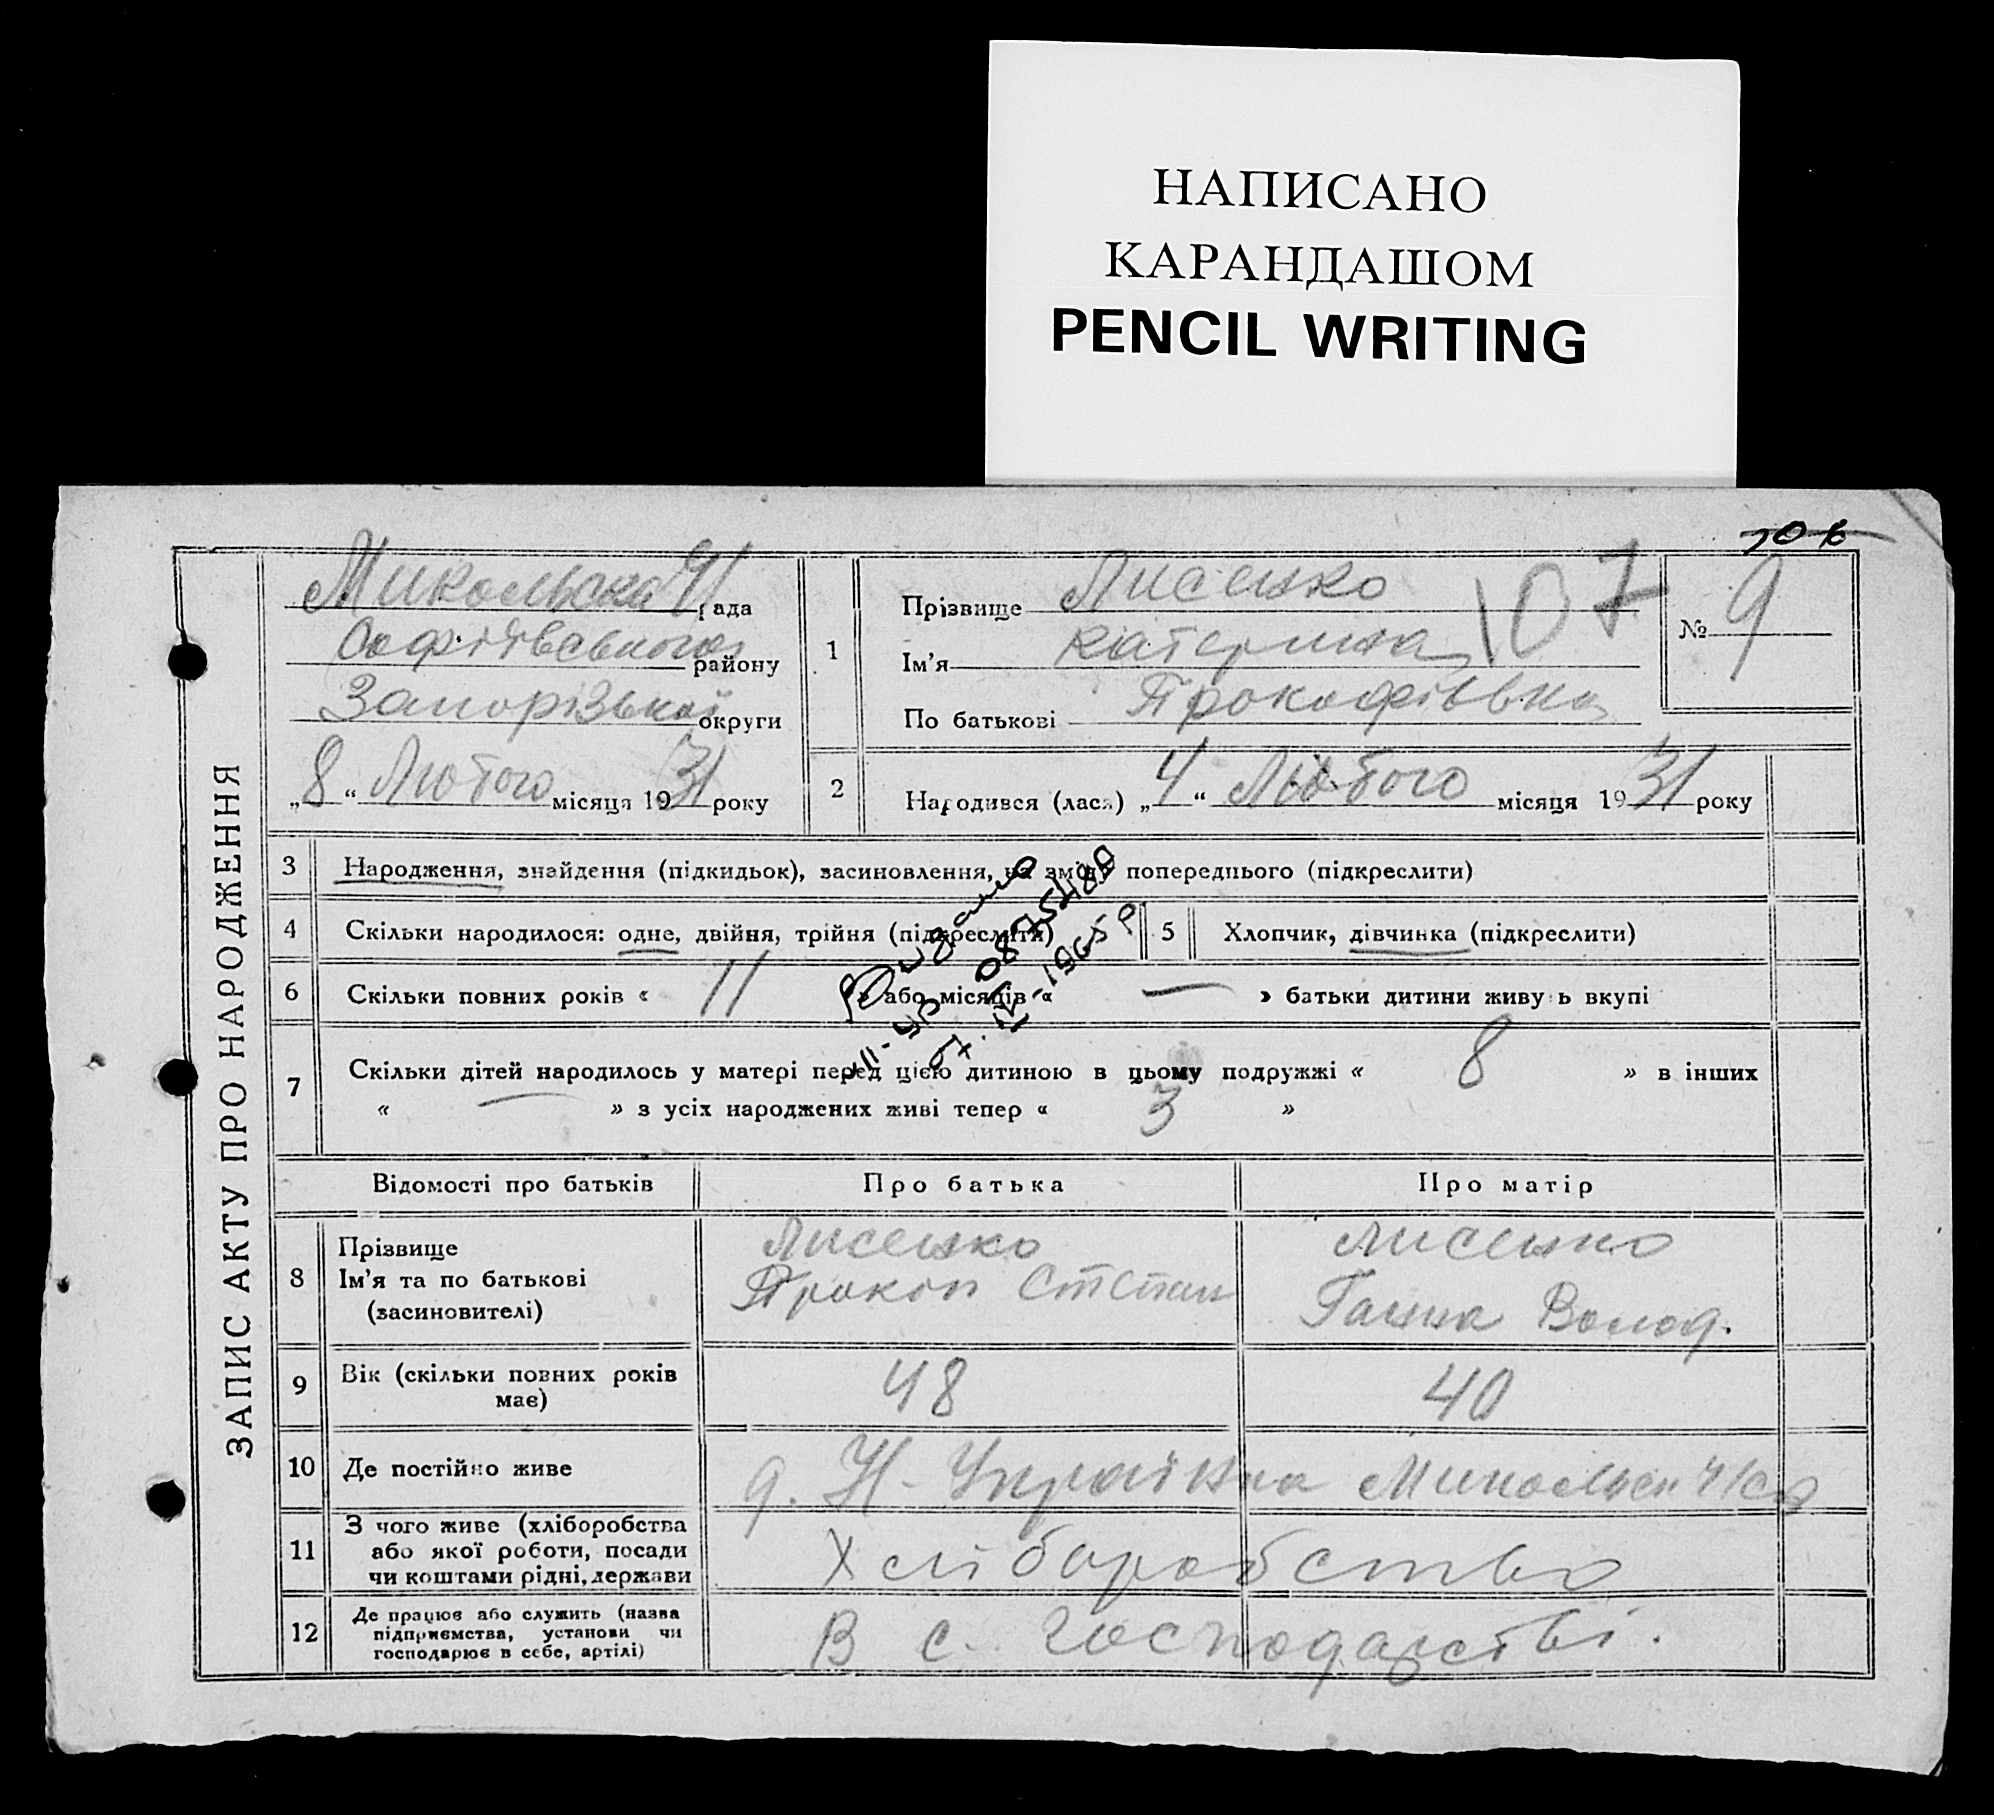 НАПИСАНО
КАРАНДАШОМ
PENCIL WRITING
106
ЗАПИС АКТУ ПРО НАРОДЖЕННЯ
Микольська рада
Софіївського району
Запорізької округи
„8“ Лютого місяця 1931 року
1
Прізвище Лисенко
Ім’я Катерина
По батькові Прокофіівна
107
№ 9
2 Народився (лася) „4“ Лютого місяця 1931 року
3 Народження, знайдення (підкидьок), засиновлення, на зміну попереднього (підкреслити)
4 Скільки народилося: одне, двійня, трійня (підкреслити) 5 Хлопчик, дівчинка (підкреслити)
6 Скільки повних років « 11 » або місяців « — » батьки дитини живуть вкупі
7 Скільки дітей народилось у матері перед цією дитиною в цьому подружжі « 8 » в інших
« — » з усіх народжених живі тепер « 3 »
Видано
II-УР 0875480
1965 р
Відомості про батьків Про батька Про матір
8 Прізвище
Ім’я та по батькові
(засиновителі)
Лисенко
Прокоп Степан
Лисенко
Ганна Волод.
9 Вік (скільки повних років
має)
48 40
10 Де постійно живе
д. Н-Українка
11 З чого живе (хліборобства
або якої роботи, посади
чи коштами рідні, держави
Хліборобство
12 Де працює або служить (назва
підприємства, установи чи
господарює в себе, артілі)
В с. господарстві.